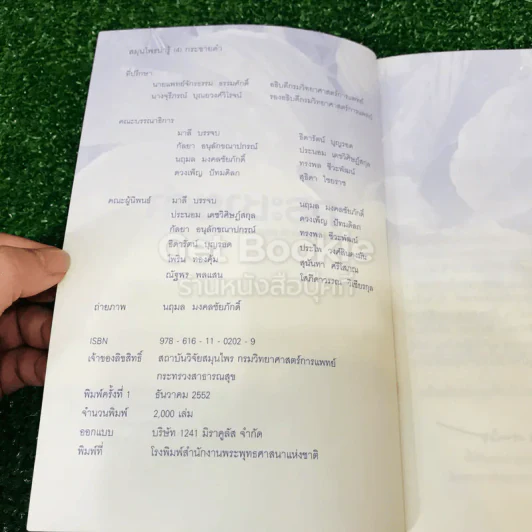 สมุนไพรน่ารู้ (4) กระชายดำ
ที่ปรึกษา
นายแพทย์จักรธรรม ธรรมศักดิ์ อธิบดีกรมวิทยาศาสตร์การแพทย์
นางจุรีภรณ์ บุณยวงศ์วิโรจน์ รองอธิบดีกรมวิทยาศาสตร์การแพทย์
คณะบรรณาธิการ
มาลี บรรจบ ธิดารัตน์ บุญรอด
กัลยา อนุลักขณาปกรณ์ ประนอม เดชวิศิษฏ์สกุล
นฤมล มงคลชัยภักดิ์ ทรงพล ชีวะพัฒน์
ดวงเพ็ญ ปัทมดิลก สุธิดา ไชยราช
คณะผู้นิพนธ์ มาลี บรรจบ นฤมล มงคลชัยภักดิ์
ประนอม เดชวิศิษฏ์สกุล ดวงเพ็ญ ปัทมดิลก
กัลยา อนุลักขณาปกรณ์ ทรงพล ชีวะพัฒน์
ธิดารัตน์ บุญรอด ประไพ วงศ์สินคงมั่น
ไพริน ทองคุ้ม สุนันทา ศรีโสภณ
ณัฐพร พลแสน
Get Bookie
ร้านหนังสือบุ๊คกี้
ถ่ายภาพ นฤมล มงคลชัยภักดิ์
ISBN 978 - 616 - 11 - 0202 - 9
เจ้าของลิขสิทธิ์ สถาบันวิจัยสมุนไพร กรมวิทยาศาสตร์การแพทย์
กระทรวงสาธารณสุข
พิมพ์ครั้งที่ 1 ธันวาคม 2552
จำนวนพิมพ์ 2,000 เล่ม
ออกแบบ บริษัท 1241 มิราคูลัส จำกัด
พิมพ์ที่ โรงพิมพ์สำนักงานพระพุทธศาสนาแห่งชาติ